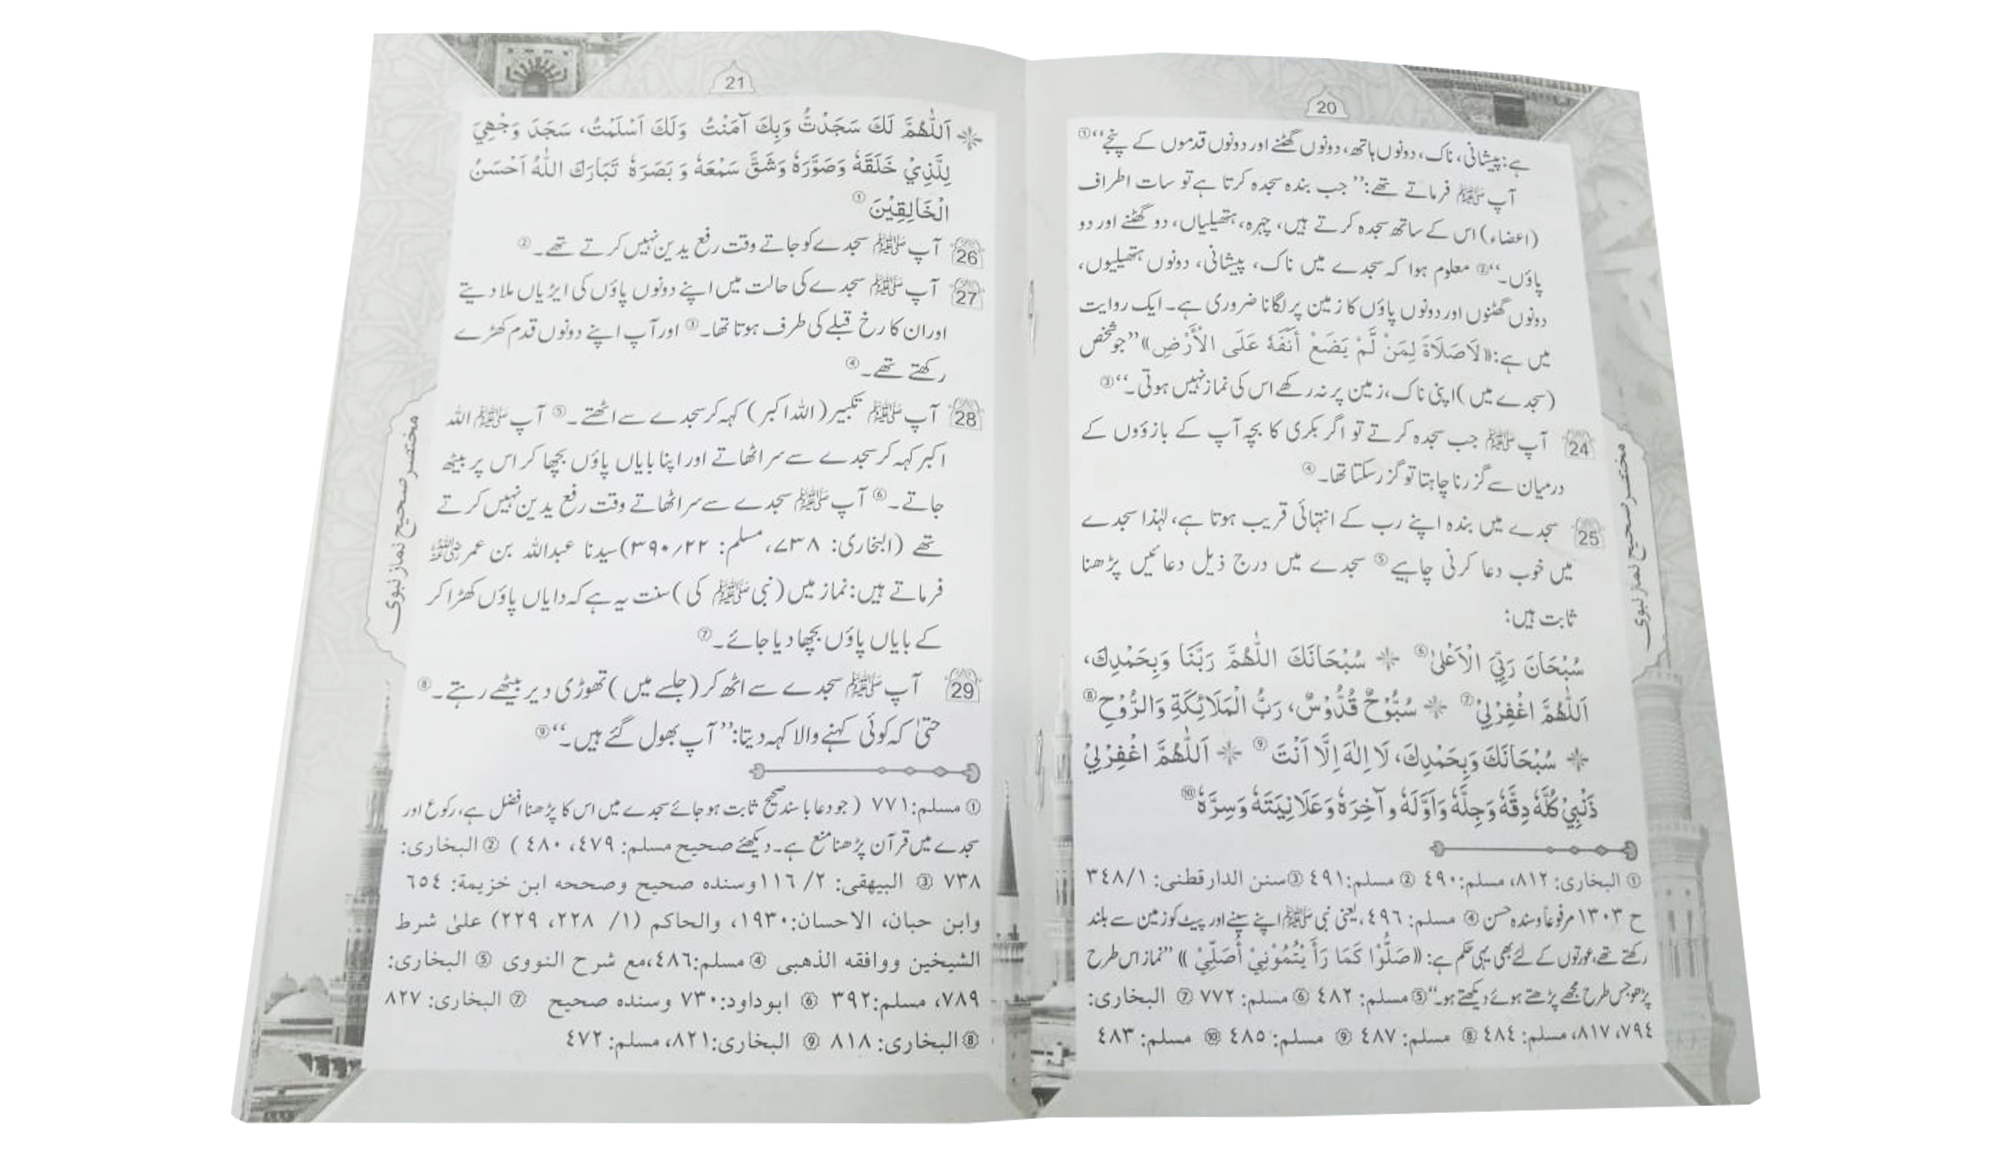 20
ہے: پیشانی، ناک، دونوں ہاتھ، دونوں گھٹنے اور دونوں قدموں کے پنجے‘‘①
آپ ﷺ فرماتے تھے: ’’جب بندہ سجدہ کرتا ہے تو سات اطراف
(اعضاء) اس کے ساتھ سجدہ کرتے ہیں، چہرہ، ہتھیلیاں، دو گھٹنے اور دو
پاؤں۔‘‘② معلوم ہوا کہ سجدے میں ناک، پیشانی، دونوں ہتھیلیوں،
دونوں گھٹنوں اور دونوں پاؤں کا زمین پر لگانا ضروری ہے۔ ایک روایت
میں ہے: «لَاصَلَاةَ لِمَنْ لَّمْ يَضَعْ أَنْفَهُ عَلَى الْأَرْضِ» ’’جو شخص
(سجدے میں) اپنی ناک، زمین پر نہ رکھے اس کی نماز نہیں ہوتی۔‘‘③
24 آپ ﷺ جب سجدہ کرتے تو اگر بکری کا بچہ آپ کے بازوؤں کے
درمیان سے گزرنا چاہتا تو گزر سکتا تھا۔④
25 سجدے میں بندہ اپنے رب کے انتہائی قریب ہوتا ہے، لہٰذا سجدے
میں خوب دعا کرنی چاہیے⑤ سجدے میں درج ذیل دعائیں پڑھنا
ثابت ہیں:
سُبْحَانَ رَبِّيَ الْاَعْلىٰ⑥ ❈ سُبْحَانَكَ اللّٰهُمَّ رَبَّنَا وَبِحَمْدِكَ،
اَللّٰهُمَّ اغْفِرْلِيْ⑦ ❈ سُبُّوْحٌ قُدُّوْسٌ، رَبُّ الْمَلَائِكَةِ وَالرُّوْحِ⑧
❈ سُبْحَانَكَ وَبِحَمْدِكَ، لَا اِلٰهَ اِلَّا اَنْتَ⑨ ❈ اَللّٰهُمَّ اغْفِرْلِيْ
ذَنْبِيْ كُلَّهٗ دِقَّهٗ وَجِلَّهٗ وَاَوَّلَهٗ وآخِرَهٗ وَعَلَانِيَتَهٗ وَسِرَّهٗ⑩
① البخاری: ٨١٢، مسلم: ٤٩٠ ② مسلم: ٤٩١ ③ سنن الدارقطنی: ٣٤٨/١
ح ١٣٠٣ مرفوعاً وسندہ حسن ④ مسلم: ٤٩٦، یعنی نبی ﷺ اپنے سینے اور پیٹ کو زمین سے بلند
رکھتے تھے، عورتوں کے لئے بھی یہی حکم ہے: «صَلُّوْا كَمَا رَأَيْتُمُوْنِيْ أُصَلِّيْ» ’’نماز اس طرح
پڑھو جس طرح مجھے پڑھتے ہوئے دیکھتے ہو۔‘‘ ⑤ مسلم: ٤٨٢ ⑥ مسلم: ٧٧٢ ⑦ البخاری:
٧٩٤، ٨١٧، مسلم: ٤٨٤ ⑧ مسلم: ٤٨٧ ⑨ مسلم: ٤٨٥ ⑩ مسلم: ٤٨٣
مختصر صحیح نماز نبوی
21
❈ اَللّٰهُمَّ لَكَ سَجَدْتُّ وَبِكَ آمَنْتُ وَلَكَ اَسْلَمْتُ، سَجَدَ وَجْهِيَ
لِلَّذِيْ خَلَقَهٗ وَصَوَّرَهٗ وَشَقَّ سَمْعَهٗ وَبَصَرَهٗ تَبَارَكَ اللّٰهُ اَحْسَنُ
الْخَالِقِيْنَ①
26 آپ ﷺ سجدے کو جاتے وقت رفع یدین نہیں کرتے تھے۔②
27 آپ ﷺ سجدے کی حالت میں اپنے دونوں پاؤں کی ایڑیاں ملا دیتے
اور ان کا رخ قبلے کی طرف ہوتا تھا۔③ اور آپ اپنے دونوں قدم کھڑے
رکھتے تھے۔④
28 آپ ﷺ تکبیر (اللہ اکبر) کہہ کر سجدے سے اٹھتے۔⑤ آپ ﷺ اللہ
اکبر کہہ کر سجدے سے سر اٹھاتے اور اپنا بایاں پاؤں بچھا کر اس پر بیٹھ
جاتے۔⑥ آپ ﷺ سجدے سے سر اٹھاتے وقت رفع یدین نہیں کرتے
تھے (البخاری: ٧٣٨، مسلم: ٣٩٠/٢٢) سیدنا عبداللہ بن عمر رضی اللہ عنہ
فرماتے ہیں: نماز میں (نبی ﷺ کی) سنت یہ ہے کہ دایاں پاؤں کھڑا کر
کے بایاں پاؤں بچھا دیا جائے۔⑦
29 آپ ﷺ سجدے سے اٹھ کر (جلسے میں) تھوڑی دیر بیٹھے رہتے۔⑧
حتیٰ کہ کوئی کہنے والا کہہ دیتا: ’’آپ بھول گئے ہیں۔‘‘⑨
① مسلم: ٧٧١ (جو دعا باسند صحیح ثابت ہو جائے سجدے میں اس کا پڑھنا افضل ہے، رکوع اور
سجدے میں قرآن پڑھنا منع ہے۔ دیکھئے صحیح مسلم: ٤٧٩، ٤٨٠) ② البخاری:
٧٣٨ ③ البیهقی: ٢/ ١١٦ وسنده صحیح وصححه ابن خزیمة: ٦٥٤
وابن حبان، الاحسان: ١٩٣٠، والحاکم (١/ ٢٢٨، ٢٢٩) علیٰ شرط
الشیخین ووافقه الذهبی ④ مسلم: ٤٨٦، مع شرح النووی ⑤ البخاری:
٧٨٩، مسلم: ٣٩٢ ⑥ ابوداود: ٧٣٠ وسنده صحیح ⑦ البخاری: ٨٢٧
⑧ البخاری: ٨١٨ ⑨ البخاری: ٨٢١، مسلم: ٤٧٢
مختصر صحیح نماز نبوی